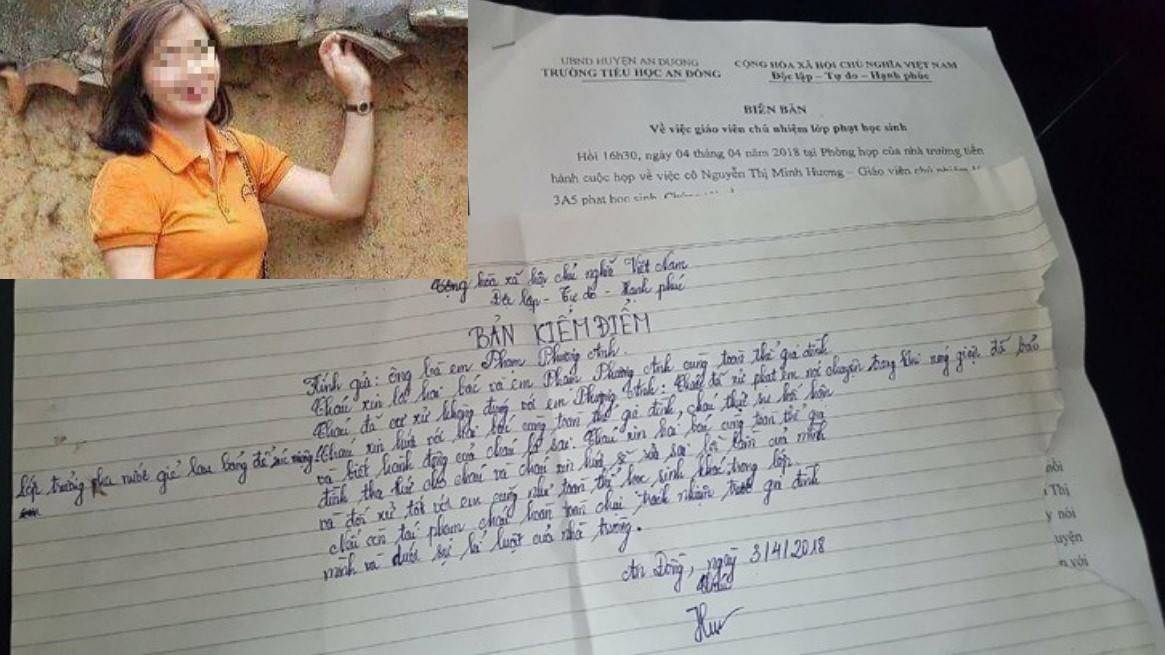 UBND HUYỆN AN DƯƠNG
TRƯỜNG TIỂU HỌC AN ĐỒNG
CỘNG HÒA XÃ HỘI CHỦ NGHĨA VIỆT NAM
Độc lập – Tự do – Hạnh phúc
BIÊN BẢN
Về việc giáo viên chủ nhiệm lớp phạt học sinh
Hồi 16h30, ngày 04 tháng 04 năm 2018 tại Phòng họp của nhà trường tiến
hành cuộc họp về việc cô Nguyễn Thị Minh Hương – Giáo viên chủ nhiệm
3A5 phạt học sinh.
Cộng hòa xã hội chủ nghĩa Việt Nam
Độc lập - Tự do - Hạnh phúc
BẢN KIỂM ĐIỂM
Kính gửi: ông bà em Phạm Phương Anh.
Cháu xin lỗi hai bác và em Phạm Phương Anh cùng toàn thể gia đình
Cháu đã cư xử không đúng với em Phương Anh: Cháu đã xử phạt em nói chuyện trong khi nóng giận đã bảo
lớp trưởng pha nước giẻ lau bảng để súc miệng. Cháu xin hứa với hai bác cùng toàn thể gia đình, cháu thực sự hối hận
và biết hành động của cháu là sai. Cháu xin hai bác cùng toàn thể gia
đình tha thứ cho cháu và cháu xin hứa sẽ sửa sai lỗi lầm của mình
và đối xử tốt với em cũng như toàn thể học sinh khác trong lớp.
Nếu còn tái phạm cháu hoàn toàn chịu trách nhiệm trước gia đình
mình và dưới sự kỉ luật của nhà trường.
An Đồng, ngày 3/4/2018
Cháu
Thị
nói